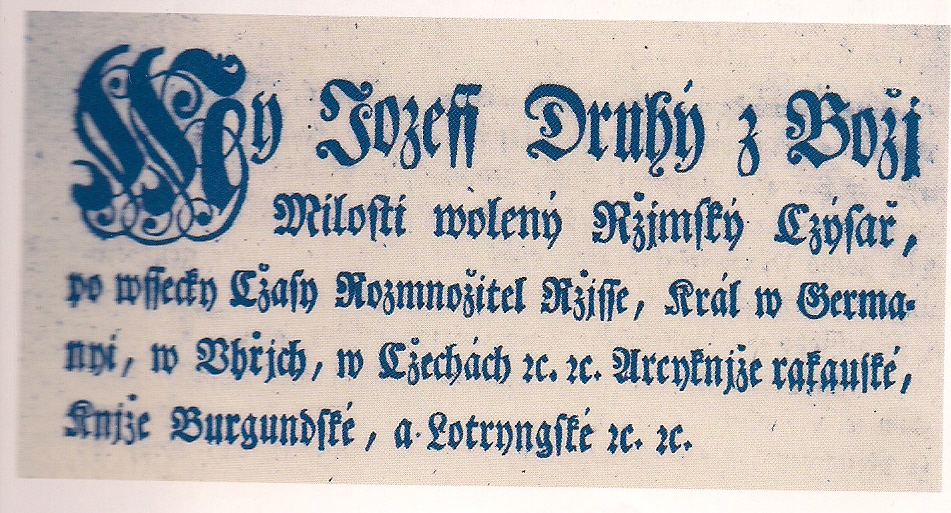 My Jozeff Druhý z Božj
Milosti wolený Ržjmský Czýsař,
po wssecky Cžasy Rozmnožitel Ržjsse, Král w Germa-
nyi, w Vhřjch, w Cžechách ꝛc. ꝛc. Arcyknjže rakauské,
Knjže Burgundské, a Lotryngské ꝛc. ꝛc.